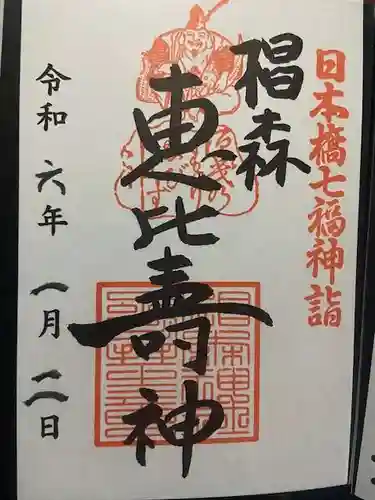 日本橋七福神詣
椙森
恵比寿神
令和六年一月二日